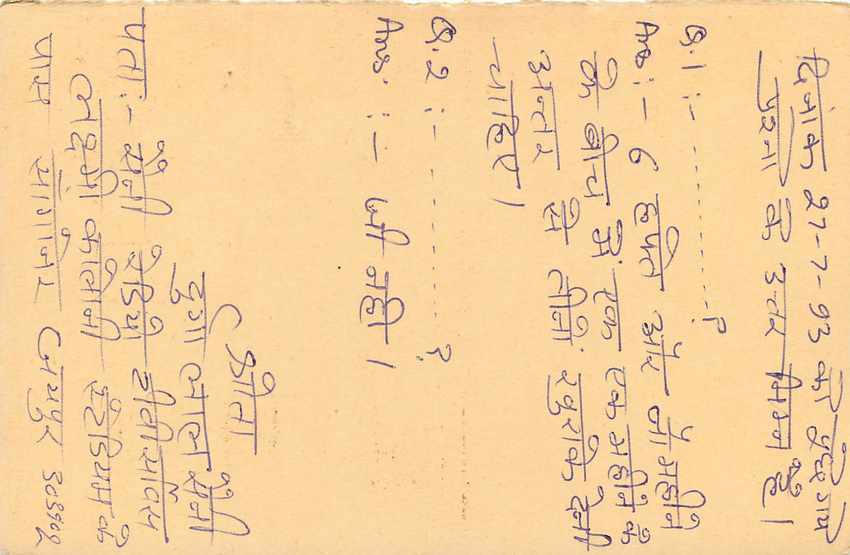 दिनांक 27-7-93 को पुछे गये
प्रश्नो के उत्तर निम्न है।
Q.1:- ..........?
Ans:- 6 हफ्ते और नौ महीने
के बीच में एक एक महीने के
अन्तर से तीनो खुराके देनी
चाहिए।
Q.2:- ..........?
Ans:- जी नही।
श्रोता
दुर्गा लाल सैनी
पता:- सैनी रेडियो टीवी सर्विस
लक्ष्मी कालोनी स्टेडियम के
पास सांगानेर जयपुर